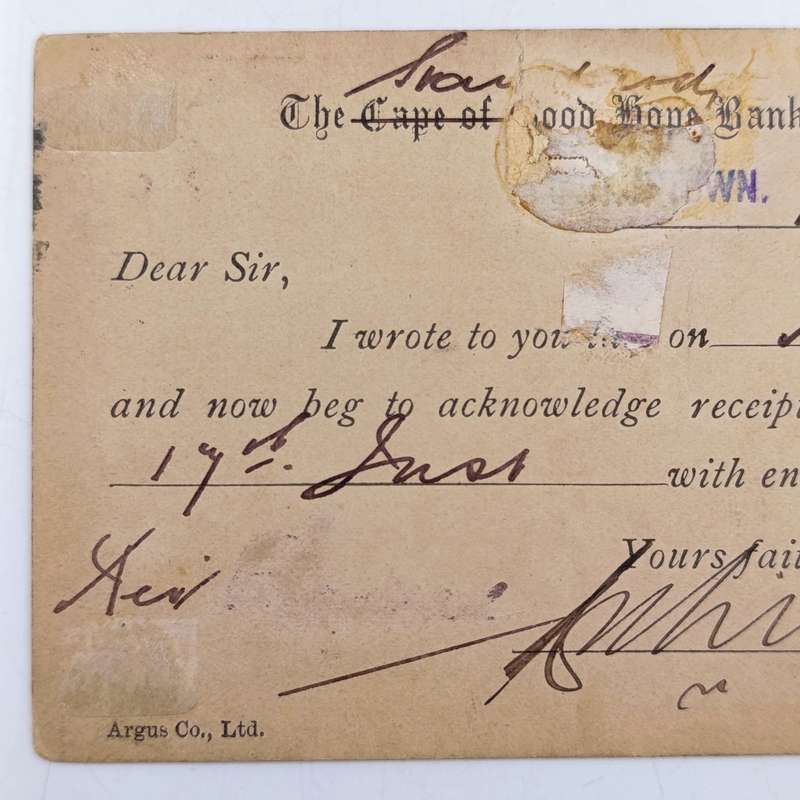 The Cape of Good Hope Bank
WN.
Dear Sir,
I wrote to you on
and now beg to acknowledge receipt
17th. Inst with en
Yours fait
Argus Co., Ltd.